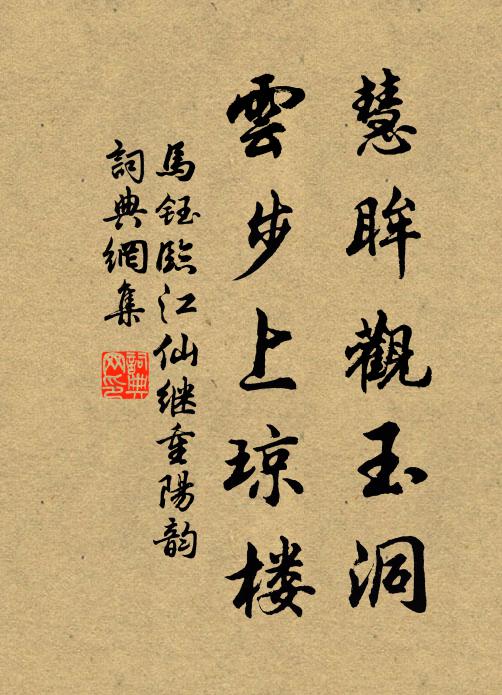 慧眸觀玉洞
雲步上琼楼
馬鈺臨江仙继重陽韵
詞典網集
詞典网印